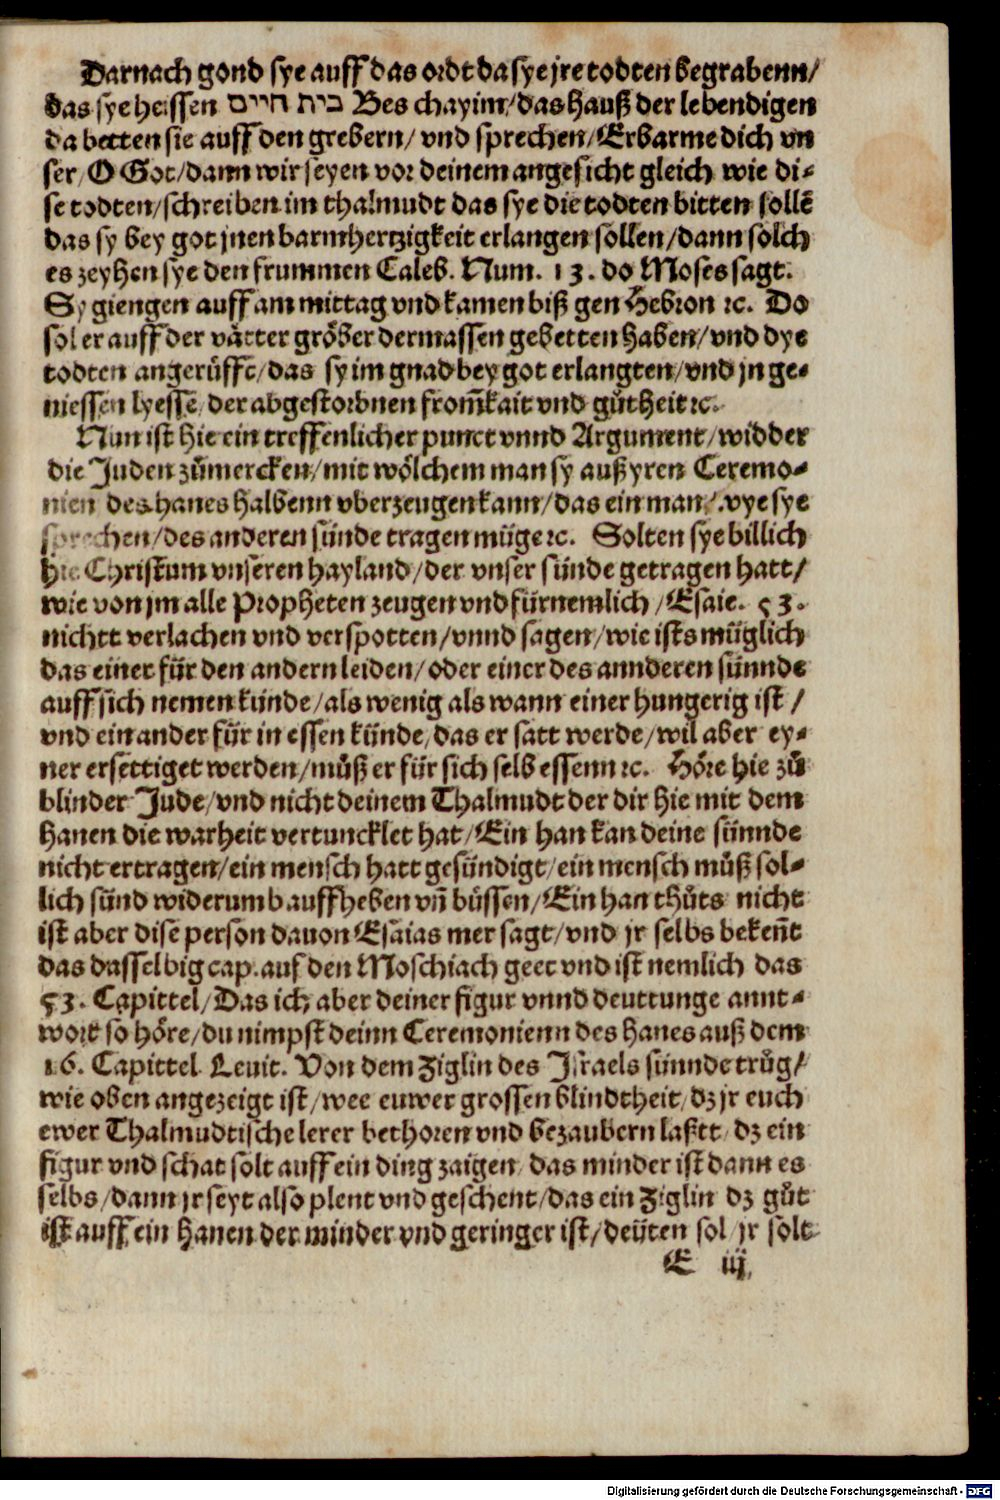 Darnach gond sye auff das ordt da sye jre todten begrabenn/
das sye heissen בית חיים Bes chayim/das hauß der lebendigen
da betten sie auff den grebern/ vnd sprechen/Erbarme dich vn
ser/O Got/dann wir seyen vor deinem angesicht gleich wie di-
se todten/schreiben im thalmudt das sye die todten bitten sollē
das sy bey got jnen barmhertzigkeit erlangen sollen/dann solch
es zeyhen sye den frummen Caleb. Num. 13. do Moses sagt.
Sy giengen auff am mittag vnd kamen biß gen Hebron ꝛc. Do
sol er auff der vätter gröber dermassen gebetten haben/vnd dye
todten angerüfft/das sy im gnad bey got erlangten/vnd jn ge-
niessen lyessē/der abgestorbnen from̄kait vnd gůtheit ꝛc.
Nun ist hie ein treffenlicher punct vnnd Argument/widder
die Juden zůmercken/mit wölchem man sy auß yren Ceremo-
nien des hanes halbenn vberzeugen kann/das ein man/wye sye
sprechen/des anderen sünde tragen müge ꝛc. Solten sye billich
hie Christum vnseren hayland/der vnser sünde getragen hatt/
wie von jm alle Propheten zeugen vnd fürnemlich/Esaie. 53.
nichtt verlachen vnd verspotten/vnnd sagen/wie ists müglich
das einer für den andern leiden/oder einer des annderen sünnde
auff sich nemen künde/als wenig als wann einer hungerig ist/
vnd ein ander für in essen künde/das er satt werde/wil aber ey-
ner ersettiget werden/můß er für sich selb essenn ꝛc. Höre hie zů
blinder Jude/vnd nicht deinem Thalmudt der dir hie mit dem
hanen die warheit vertuncklet hat/Ein han kan deine sünnde
nicht ertragen/ein mensch hatt gesündigt/ein mensch můß sol-
lich sünd widerumb auffheben vn̄ büssen/Ein han thůts nicht
ist aber dise person dauon Esaias mer sagt/vnd jr selbs beken̄t
das dasselbig cap. auf den Moschiach geet vnd ist nemlich das
53. Capittel/Das ich aber deiner figur vnnd deuttunge annt-
wort so höre/du nimpst deinn Ceremonienn des hanes auß dem
16. Capittel Leuit. Von dem Ziglin des Israels sünnde trůg/
wie oben angezeigt ist/wee euwer grossen blindtheit/dz jr euch
ewer Thalmudtische lerer bethoren vnd bezaubern laßtt/dz ein
figur vnd schat solt auff ein ding zaigen/das minder ist dann es
selbs/dann jr seyt also plent vnd geschent/das ein Ziglin dz gůt
ist auff ein hanen der minder vnd geringer ist/deüten sol/jr solt
E iij
Digitalisierung gefördert durch die Deutsche Forschungsgemeinschaft - DFG